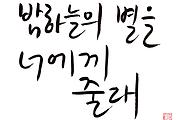 밤하늘의 별을
너에게
줄래